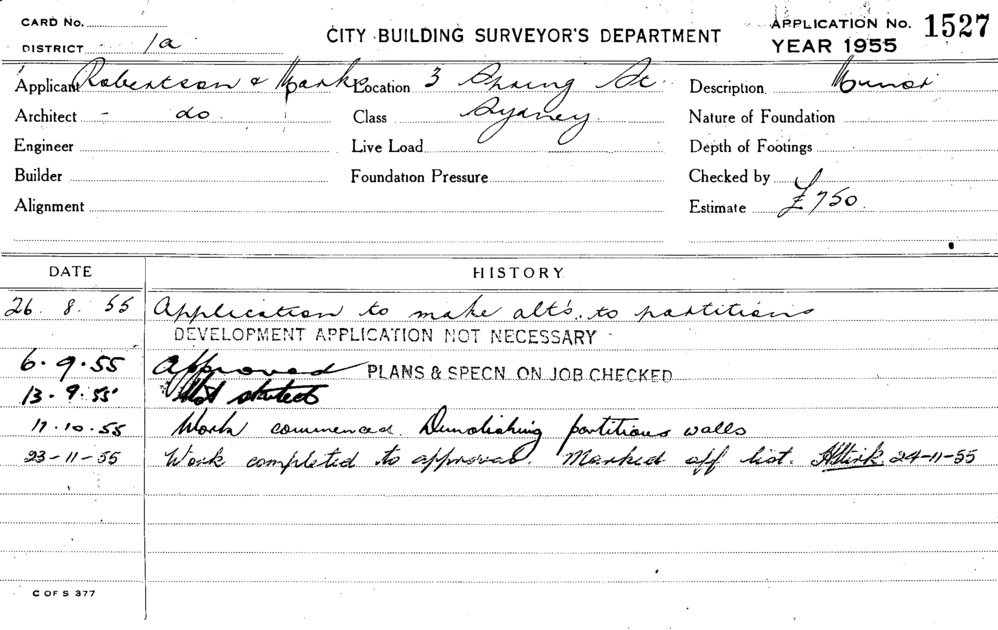 CARD No. APPLICATION No. 1527
DISTRICT 1a CITY BUILDING SURVEYOR'S DEPARTMENT YEAR 1955
Applicant Robertson & Marks Location 3 Spring St. Description Minor
Architect - do Class Sydney Nature of Foundation
Engineer Live Load Depth of Footings
Builder Foundation Pressure Checked by
Alignment Estimate £750
DATE HISTORY
26. 8. 55 Application to make alt's. to partitions
DEVELOPMENT APPLICATION NOT NECESSARY
6.9.55 Approved PLANS & SPECN. ON JOB CHECKED
13.9.55 Not started
17.10.55 Work commenced. Demolishing partitions walls
23-11-55 Work completed to approval. Marked off list. 24-11-55
C OF S 377